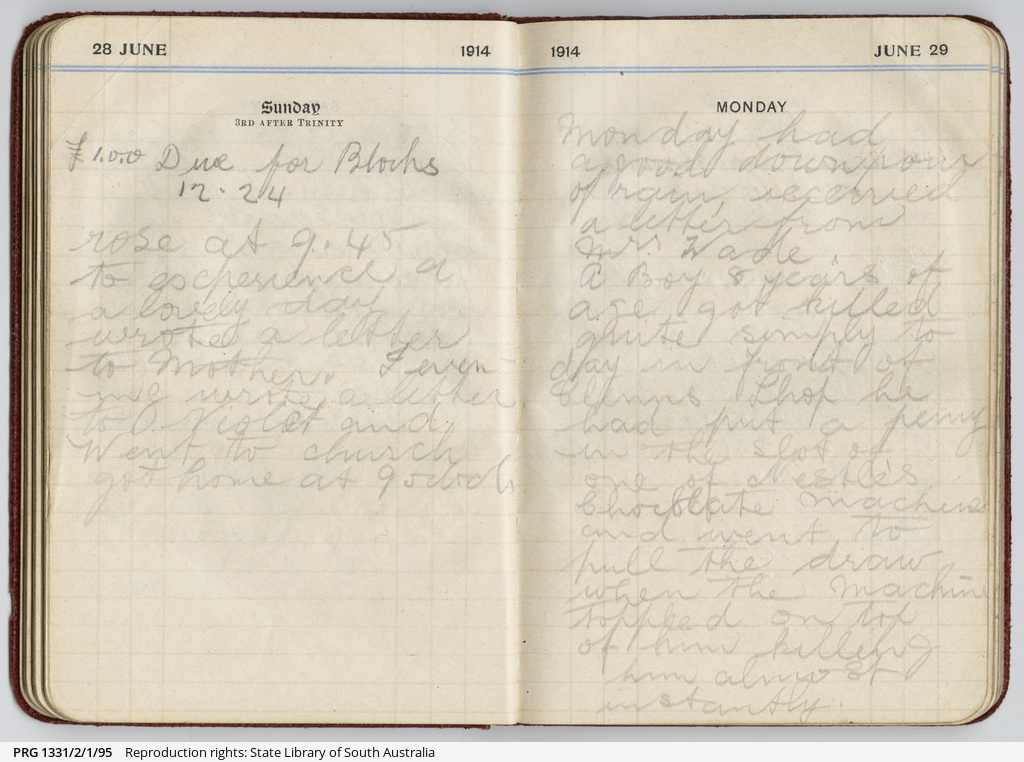 28 JUNE 1914
Sunday
3RD AFTER TRINITY
£1.0.0 Due for Blocks
12.24
rose at 9.45
to experience a
a lovely day
wrote a letter
to Mother. I even-
ing wrote a letter
to O. Violet and
Went to church
got home at 9 oclock
1914 JUNE 29
MONDAY
Monday had
a good downpour
of rain, received
a letter from
Mrs. Wade
A Boy 8 years of
age got killed
quite simply to
day in front of
Glenns Shop he
had put a penny
in the slot of
one of Nestle's
Chocolate Machine
and went to
pull the draw
when the Machine
toppled on top
of him killing
him almost
instantly.
PRG 1331/2/1/95 Reproduction rights: State Library of South Australia